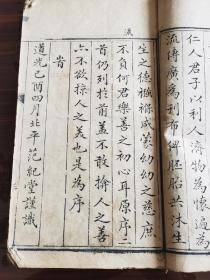 仁人君子以利人濟物為懷遍為
流傳廣為刋布俾胚胎共沐生
流
生之德襁褓咸蒙幼幼之慈庶
不負何君樂善之初心耳原序二
首仍列於前蓋不敢揜人之善
亦不欲掠人之美也是為序
旹
道光己酉四月北平范紀堂謹識